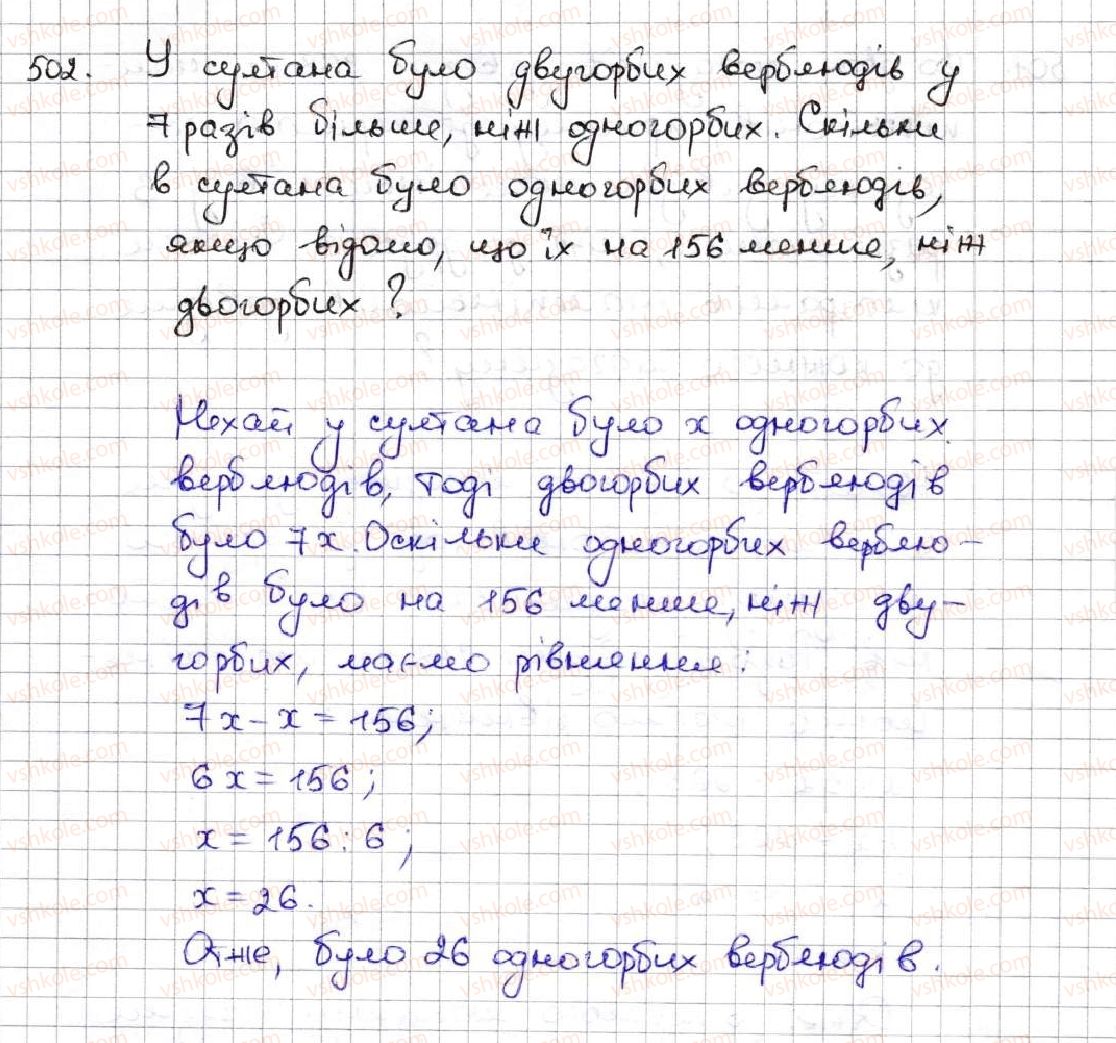 502. У султана було двугорбих верблюдів у
7 разів більше, ніж одногорбих. Скільки
в султана було одногорбих верблюдів,
якщо відомо, що їх на 156 менше, ніж
двогорбих?
Нехай у султана було x одногорбих
верблюдів, тоді двогорбих верблюдів
було 7x. Оскільки одногорбих верблю-
дів було на 156 менше, ніж дву-
горбих, маємо рівняння:
7x - x = 156;
6x = 156;
x = 156 : 6;
x = 26.
Отже, було 26 одногорбих верблюдів.